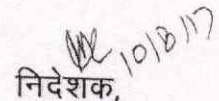 10/8/17
निदेशक,